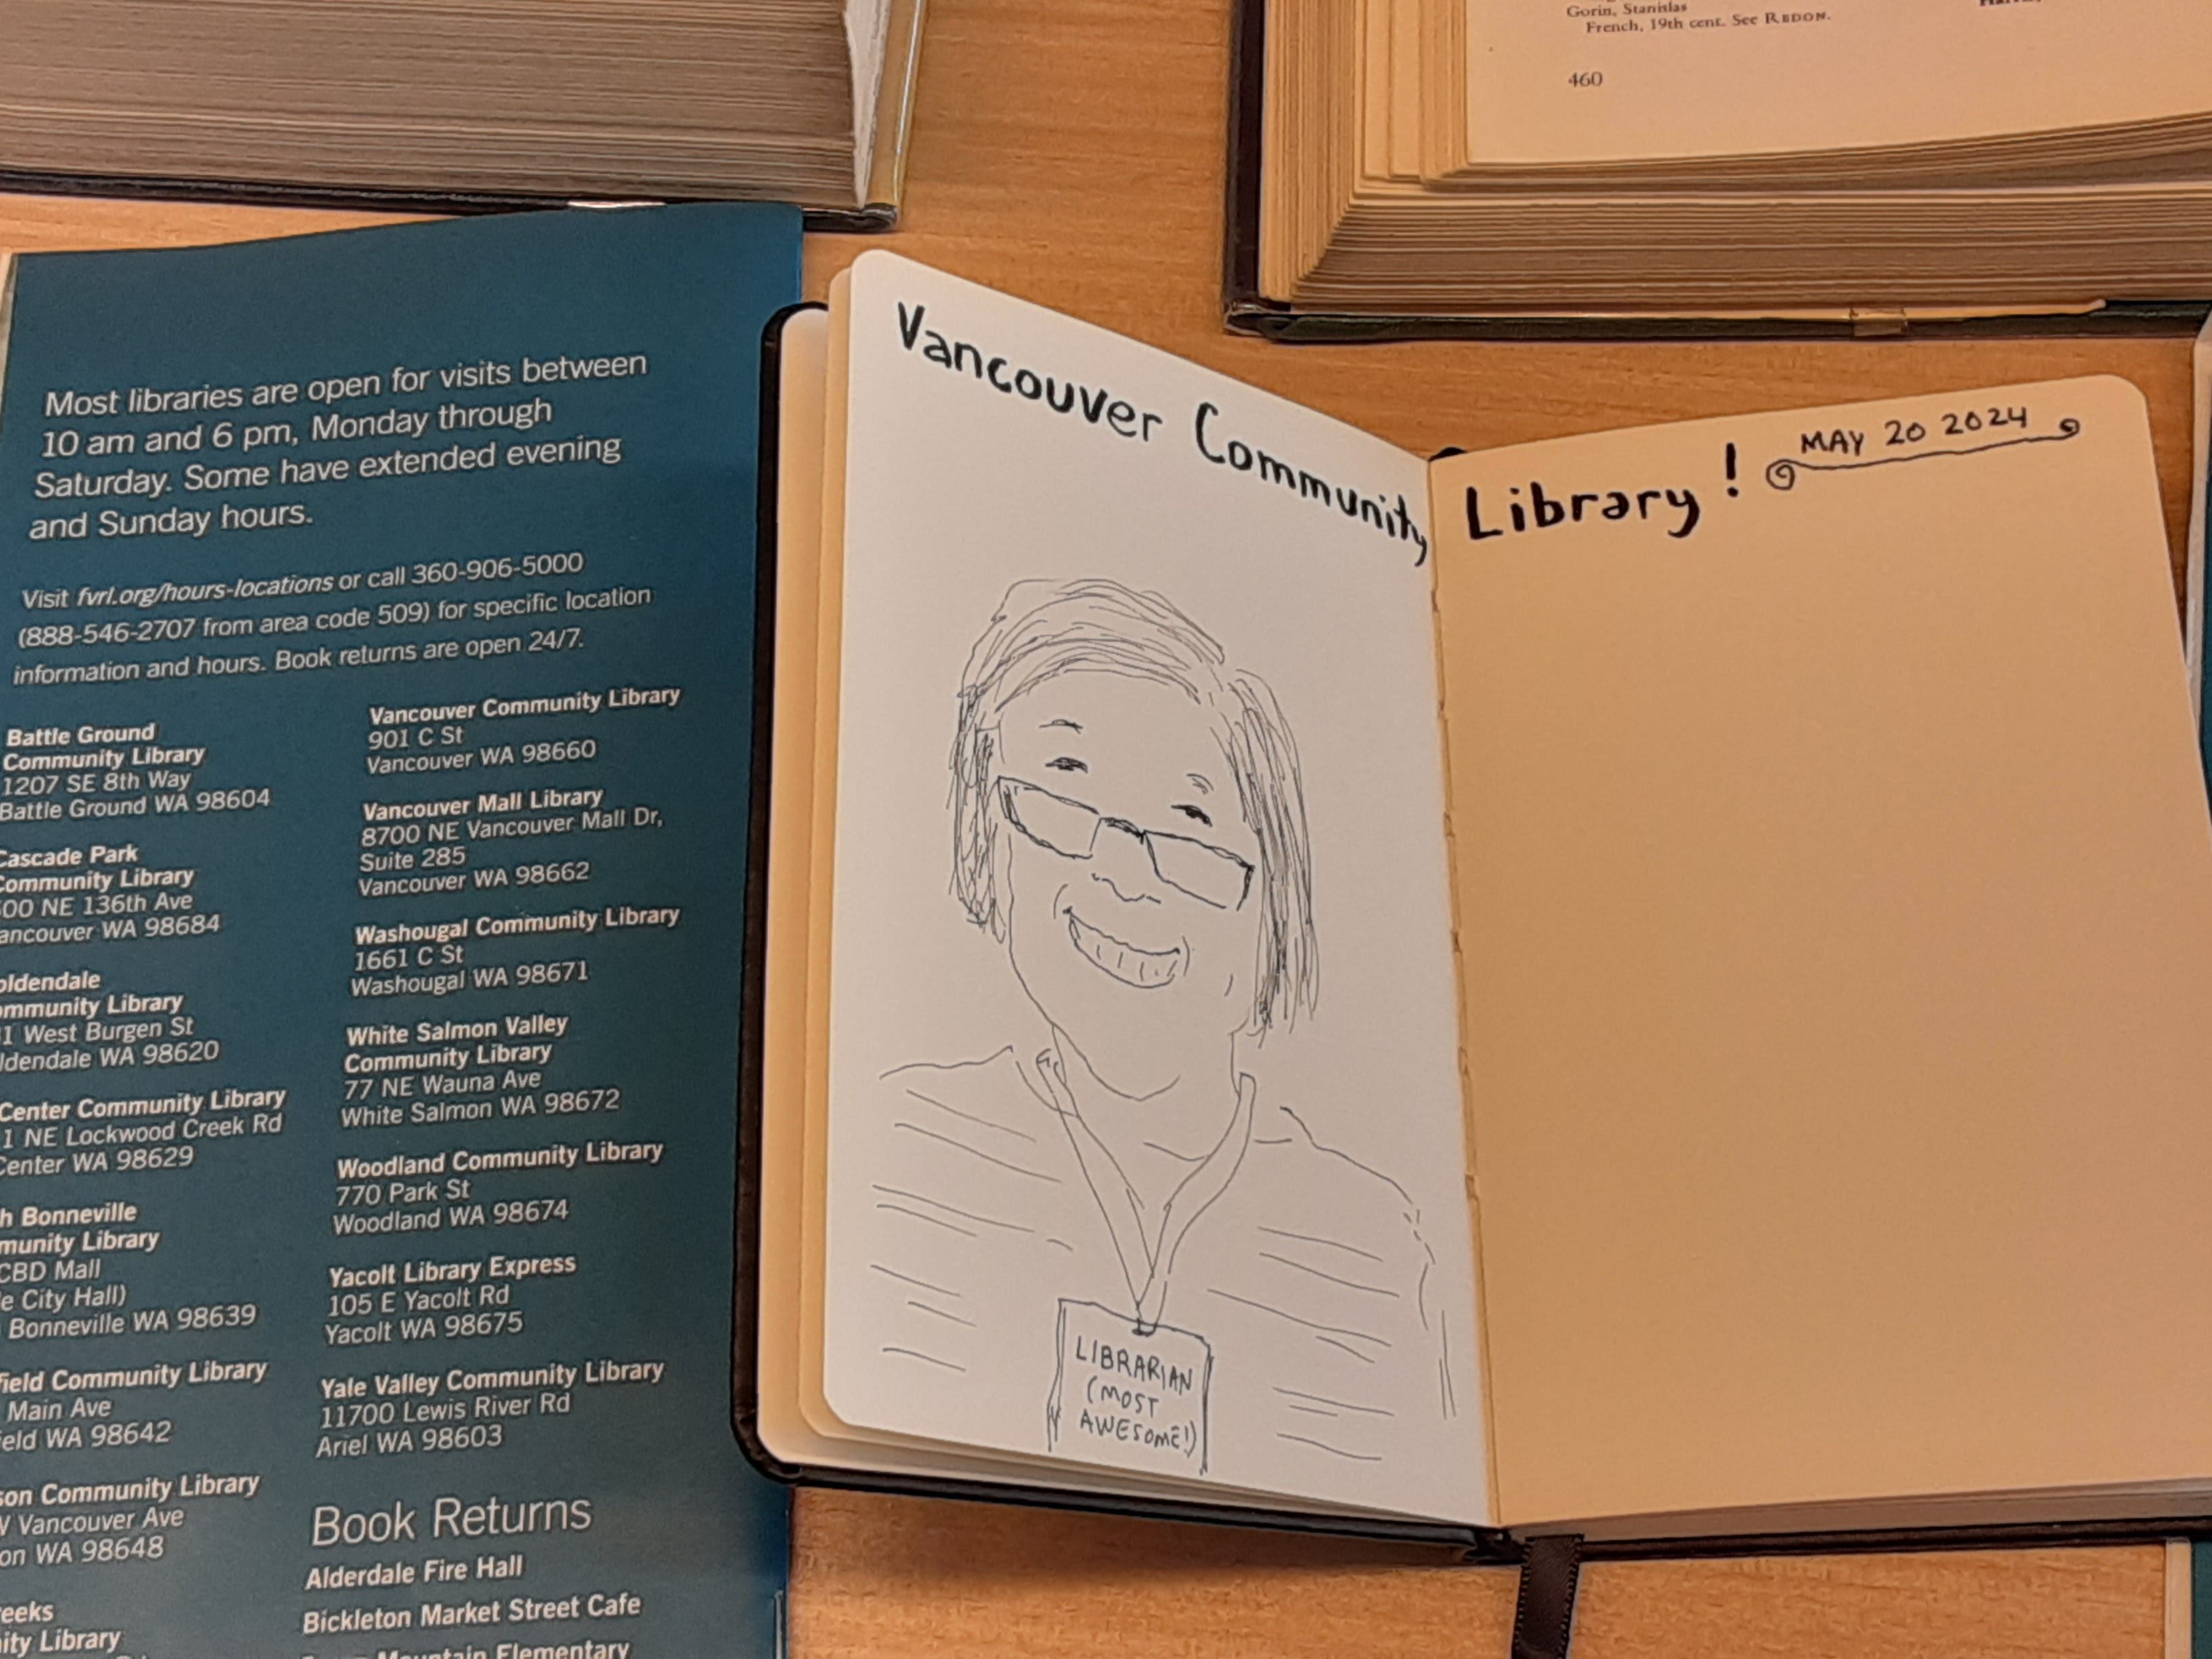 Gorin, Stanislas
French, 19th cent. See REDON.
460
Most libraries are open for visits between
10 am and 6 pm, Monday through
Saturday. Some have extended evening
and Sunday hours.
Visit fvrl.org/hours-locations or call 360-906-5000
(888-546-2707 from area code 509) for specific location
information and hours. Book returns are open 24/7.
Battle Ground
Community Library
1207 SE 8th Way
Battle Ground WA 98604
Cascade Park
Community Library
00 NE 136th Ave
ancouver WA 98684
oldendale
mmunity Library
1 West Burgen St
ldendale WA 98620
Center Community Library
1 NE Lockwood Creek Rd
Center WA 98629
h Bonneville
munity Library
CBD Mall
e City Hall)
Bonneville WA 98639
field Community Library
Main Ave
ield WA 98642
son Community Library
W Vancouver Ave
on WA 98648
eeks
ity Library
Vancouver Community Library
901 C St
Vancouver WA 98660
Vancouver Mall Library
8700 NE Vancouver Mall Dr,
Suite 285
Vancouver WA 98662
Washougal Community Library
1661 C St
Washougal WA 98671
White Salmon Valley
Community Library
77 NE Wauna Ave
White Salmon WA 98672
Woodland Community Library
770 Park St
Woodland WA 98674
Yacolt Library Express
105 E Yacolt Rd
Yacolt WA 98675
Yale Valley Community Library
11700 Lewis River Rd
Ariel WA 98603
Book Returns
Alderdale Fire Hall
Bickleton Market Street Cafe
Mountain Elementary
Vancouver Community Library!
MAY 20 2024
LIBRARIAN
(MOST
AWESOME!)